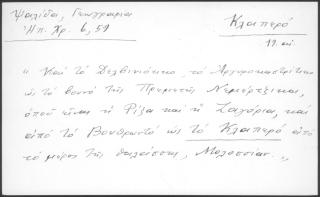 Ψαλίδα, Γεωγραφία
Ἠπ. Χρ. 6, 59
Κλαπερό
19 αἰ.
"Καὶ τὸ Δελβινιώτικο, τὸ Ἀργυροκαστρίτικο
ὡς τὸ βουνὸ τῆς Πρεμετῆς Νεμέρτζικα,
ὁποῦ εἶναι ἡ Ρίζα καὶ ἡ Ζαγόρια, καὶ
ἀπὸ τὸ Βουθρωτὸ ὡς τὸ Κλαπερὸ ἀπὸ
τὸ μέρος τῆς θαλάσσης, Μολοσσίαν."